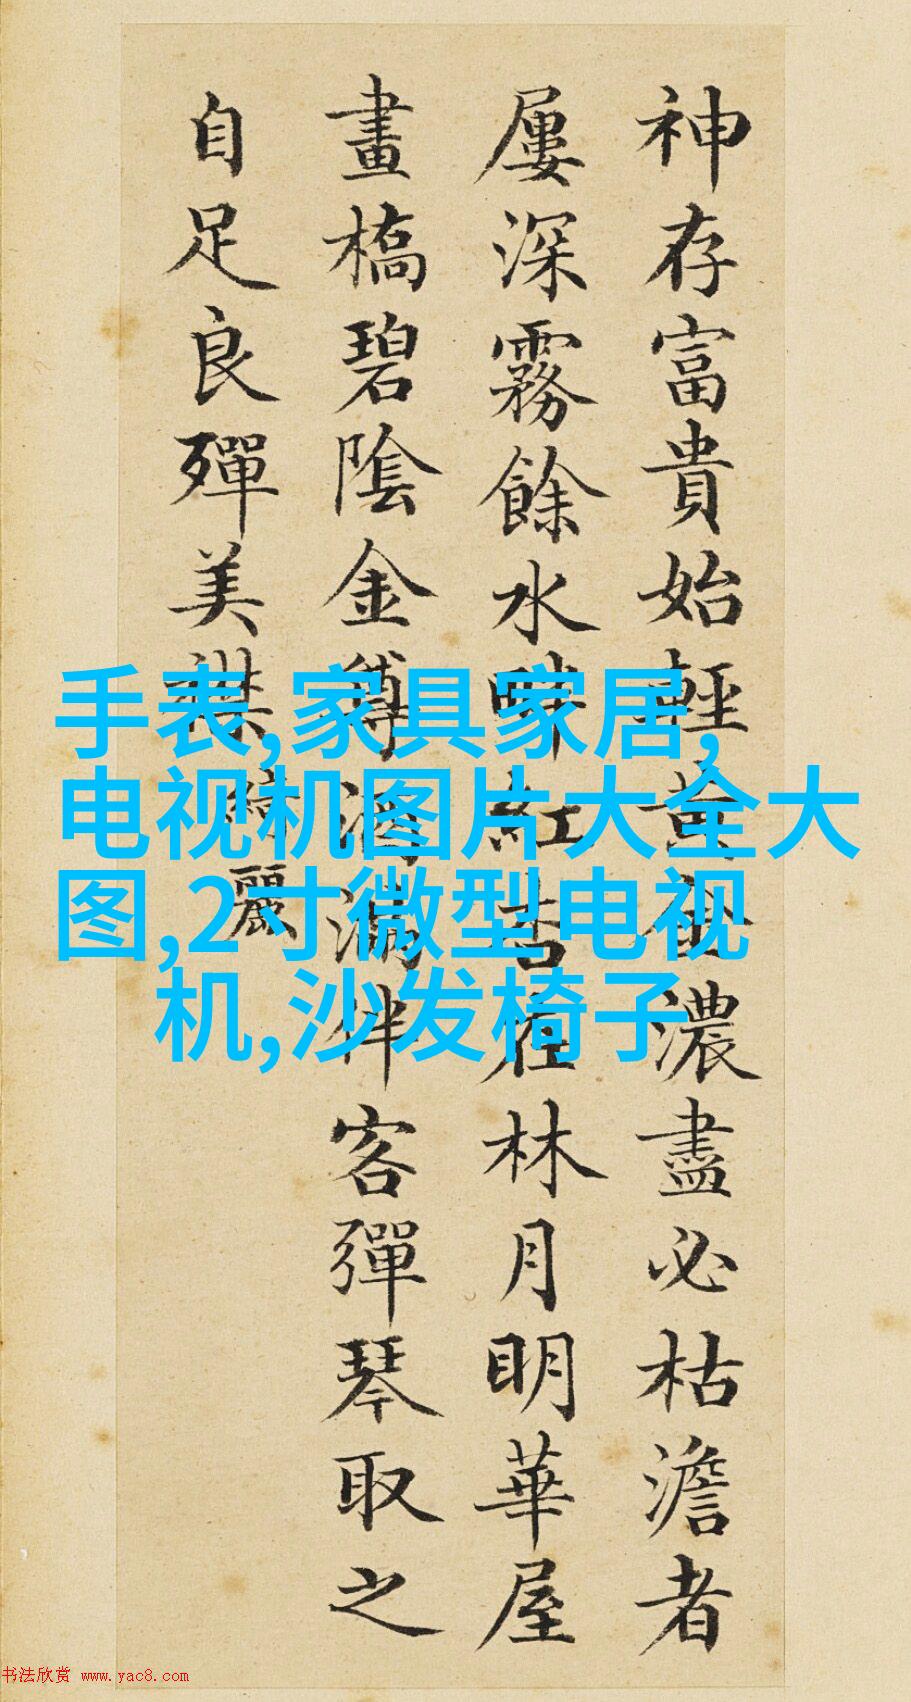 神存富貴始輕黃金濃盡必枯澹者
屢深霧餘水畔紅杏在林月明華屋
畫橋碧陰金酒滿伴客彈琴取之
自足良殫美襟綺麗
手表,家具家居,
电视机图片大全大
图,2寸微型电视
机,沙发椅子
书法欣赏 www.yac8.com